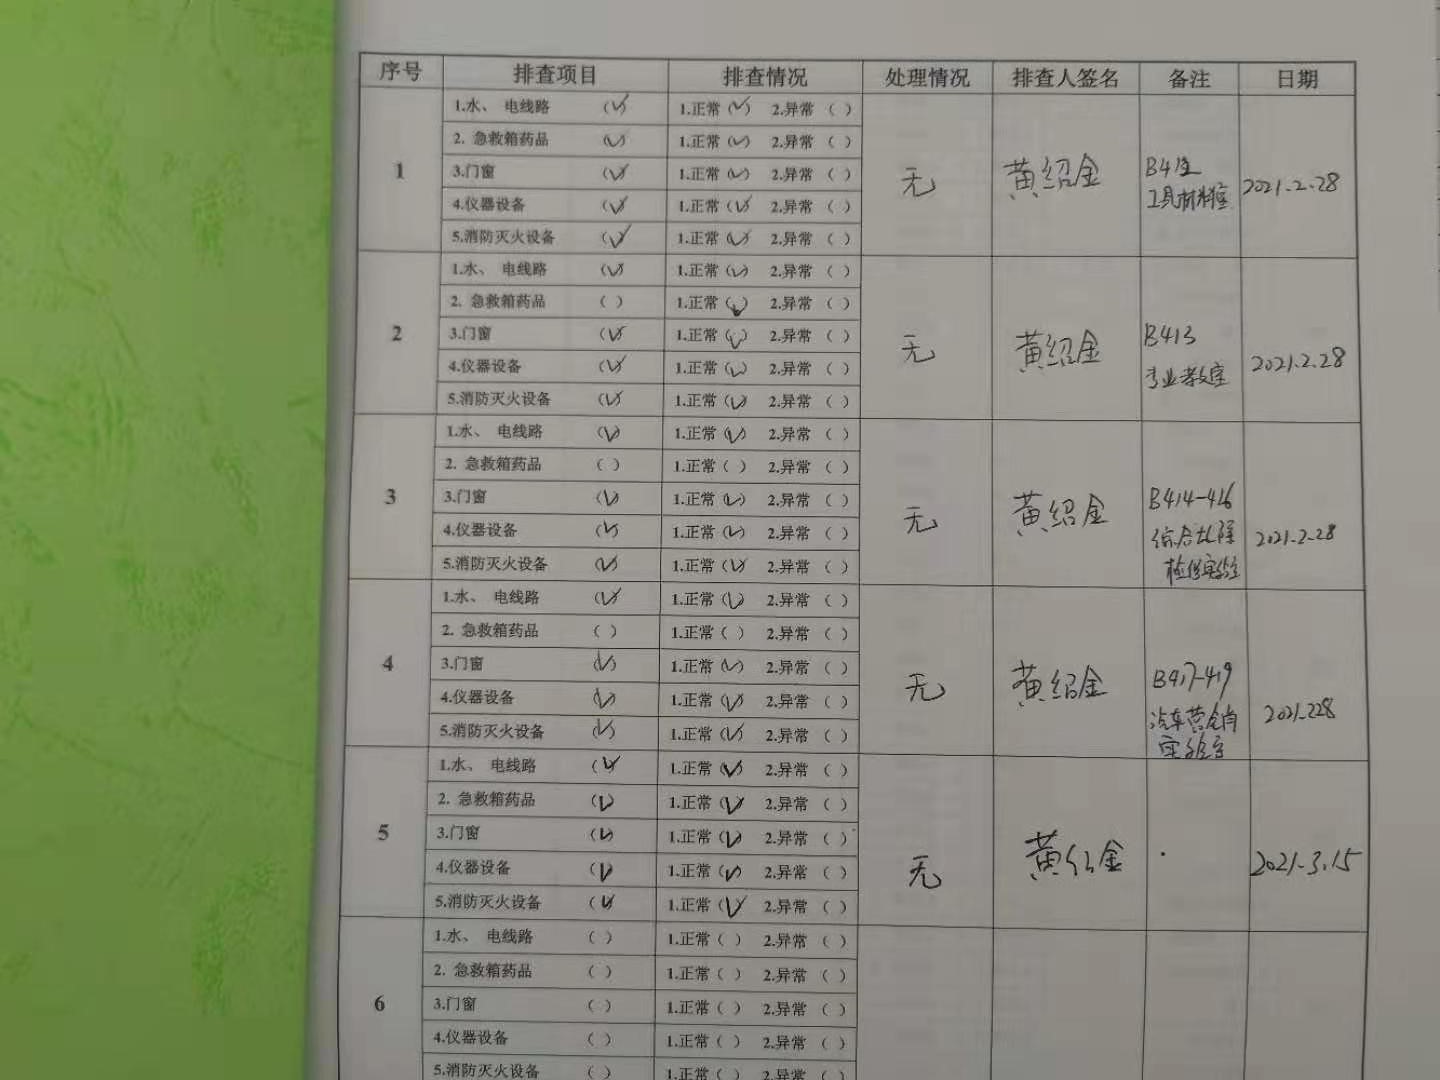 序号 排查项目 排查情况 处理情况 排查人签名 备注 日期
1 无 黄绍金 B412 工具材料室 2021.2.28
1.水、 电线路 (✓) 1.正常 (✓) 2.异常 ( )
2. 急救箱药品 (✓) 1.正常 (✓) 2.异常 ( )
3.门窗 (✓) 1.正常 (✓) 2.异常 ( )
4.仪器设备 (✓) 1.正常 (✓) 2.异常 ( )
5.消防灭火设备 (✓) 1.正常 (✓) 2.异常 ( )
2 无 黄绍金 B413 专业教室 2021.2.28
1.水、 电线路 (✓) 1.正常 (✓) 2.异常 ( )
2. 急救箱药品 ( ) 1.正常 (✓) 2.异常 ( )
3.门窗 (✓) 1.正常 (✓) 2.异常 ( )
4.仪器设备 (✓) 1.正常 (✓) 2.异常 ( )
5.消防灭火设备 (✓) 1.正常 (✓) 2.异常 ( )
3 无 黄绍金 B414-416 综合故障 检修实验室 2021.2.28
1.水、 电线路 (✓) 1.正常 (✓) 2.异常 ( )
2. 急救箱药品 ( ) 1.正常 ( ) 2.异常 ( )
3.门窗 (✓) 1.正常 (✓) 2.异常 ( )
4.仪器设备 (✓) 1.正常 (✓) 2.异常 ( )
5.消防灭火设备 (✓) 1.正常 (✓) 2.异常 ( )
4 无 黄绍金 B417-419 汽车营销 实验室 2021.228
1.水、 电线路 (✓) 1.正常 (✓) 2.异常 ( )
2. 急救箱药品 ( ) 1.正常 ( ) 2.异常 ( )
3.门窗 (✓) 1.正常 (✓) 2.异常 ( )
4.仪器设备 (✓) 1.正常 (✓) 2.异常 ( )
5.消防灭火设备 (✓) 1.正常 (✓) 2.异常 ( )
5 无 黄绍金 2021.3.15
1.水、 电线路 (✓) 1.正常 (✓) 2.异常 ( )
2. 急救箱药品 (✓) 1.正常 (✓) 2.异常 ( )
3.门窗 (✓) 1.正常 (✓) 2.异常 ( )
4.仪器设备 (✓) 1.正常 (✓) 2.异常 ( )
5.消防灭火设备 (✓) 1.正常 (✓) 2.异常 ( )
6
1.水、 电线路 ( ) 1.正常 ( ) 2.异常 ( )
2. 急救箱药品 ( ) 1.正常 ( ) 2.异常 ( )
3.门窗 ( ) 1.正常 ( ) 2.异常 ( )
4.仪器设备 ( ) 1.正常 ( ) 2.异常 ( )
5.消防灭火设备 ( ) 1.正常 ( ) 2.异常 ( )